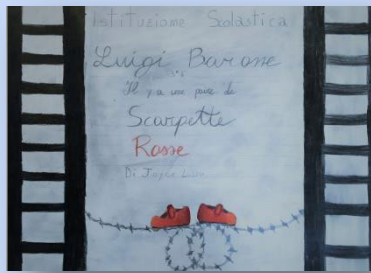 Istituzione Scolastica
Luigi Barone
Il y a une paire de
Scarpette
Rosse
Di Joyce